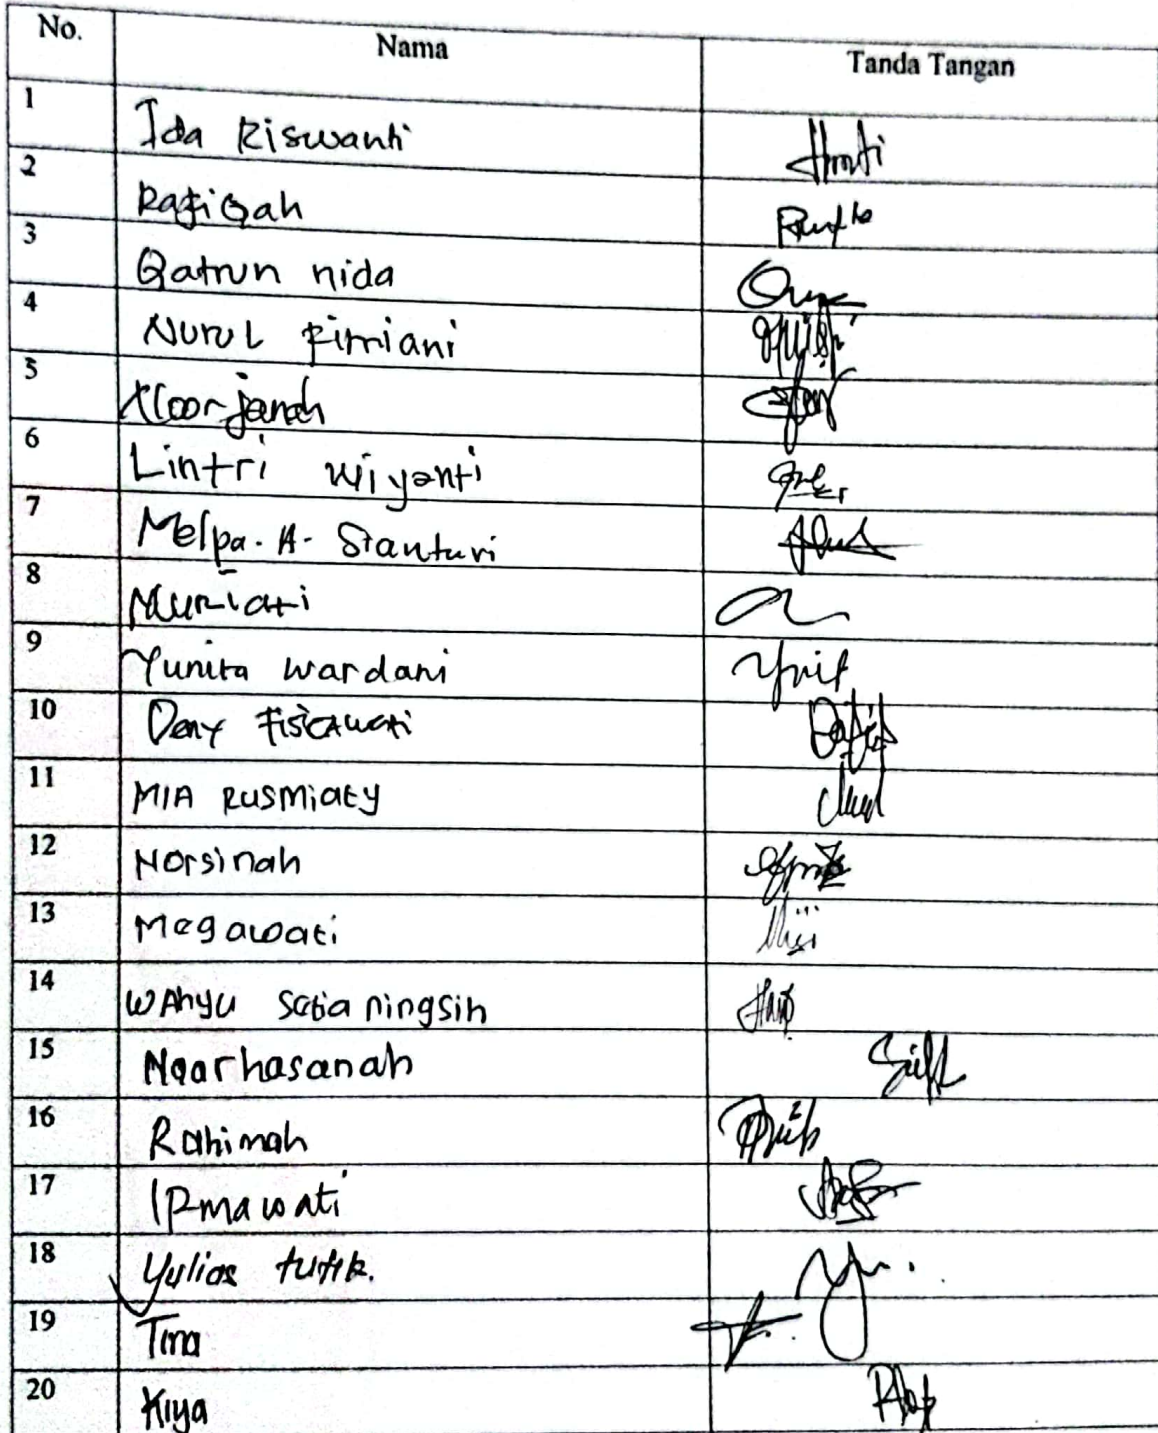 No. Nama Tanda Tangan
1 Ida Riswanti
2 Rafiqah
3 Qatrun nida
4 Nurul Fitriani
5 Noorjanah
6 Lintri Wiyanti
7 Melpa. A. Sianturi
8 Nuriati
9 Yunita Wardani
10 Deny
11 MIA RUSMIATY
12 Norsinah
13 Megawati
14 WAHYU Setia ningsih
15 Noorhasanah
16 Rahimah
17 IRmawati
18 Yulias tutik.
19 Tina
20 Kiya